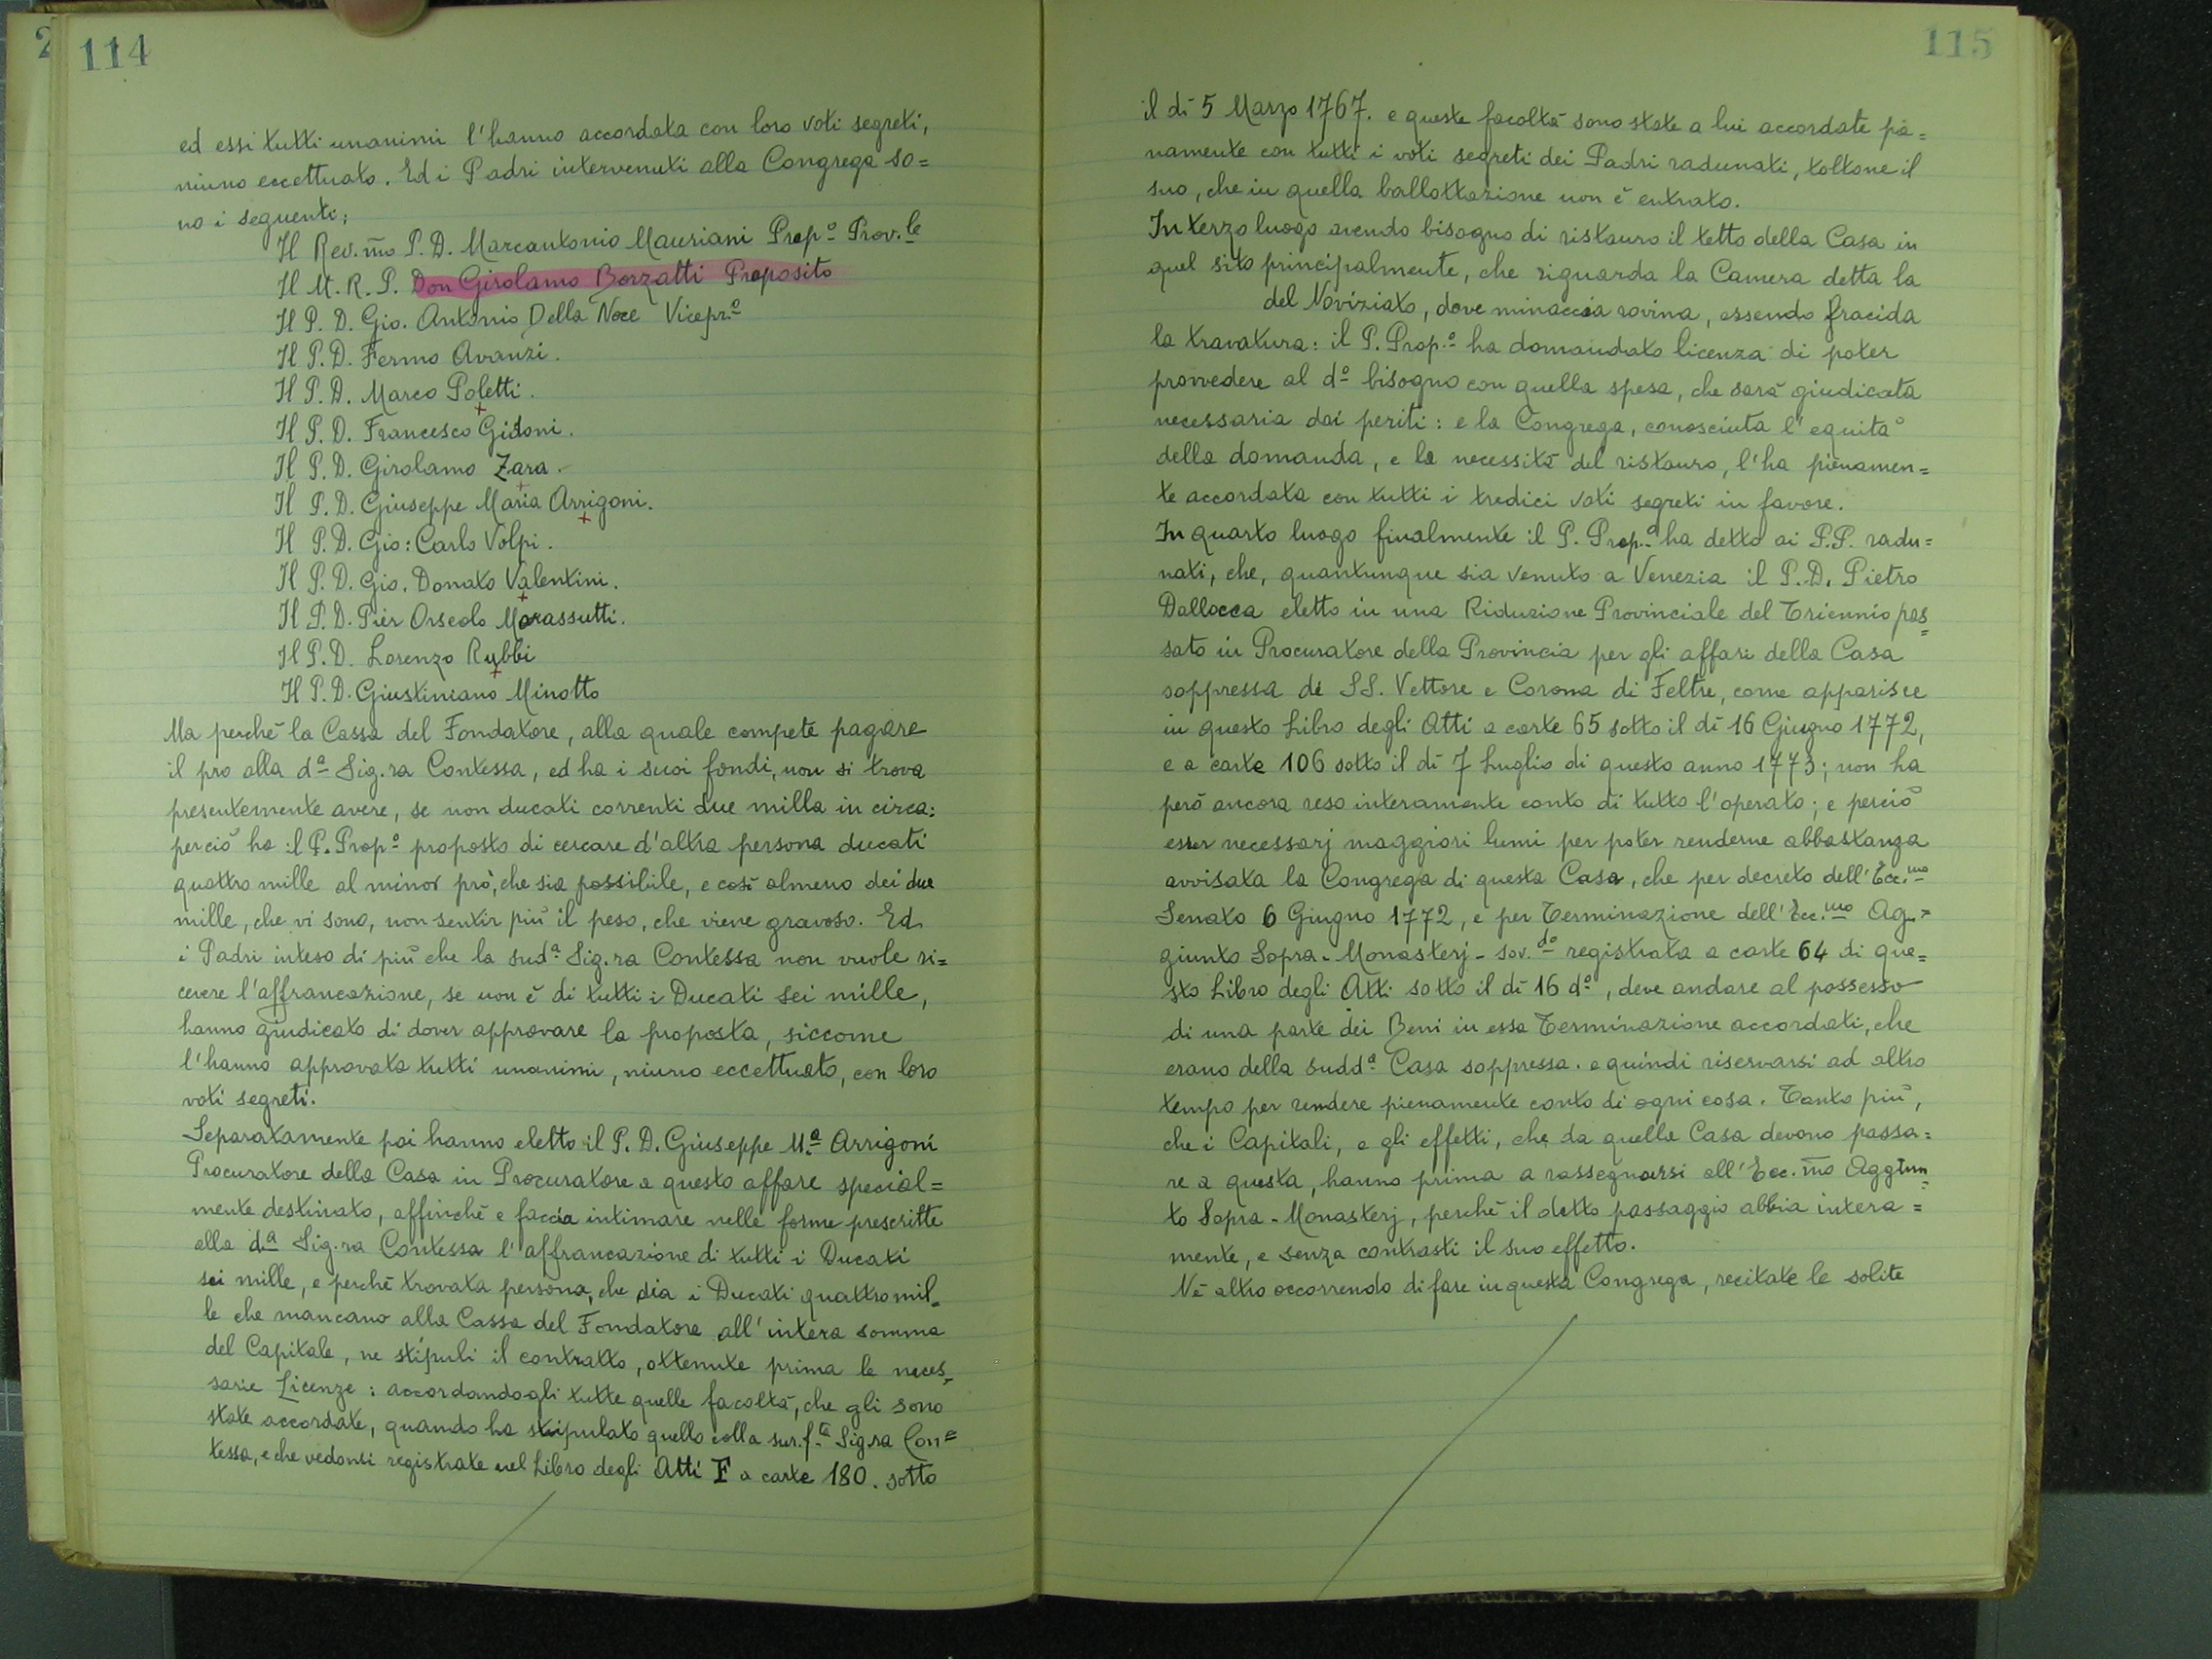 2
114
ed essi tutti unanimi l'hanno accordata con loro voti segreti,
niuno eccettuato. Ed i Padri intervenuti alla Congrega so=
no i seguenti;
Il Rev.mo P. D. Marcantonio Mauriani Prep.o Prov.le
Il M. R. P. Don Girolamo Borzatti Preposito
Il P. D. Gio. Antonio Della Noce Vicepr.o
Il P. D. Fermo Avanzi.
Il P. D. Marco Poletti.
Il P. D. Francesco Gidoni.
Il P. D. Girolamo Zara.
Il P. D. Giuseppe Maria Arrigoni.
Il P. D. Gio: Carlo Volpi.
Il P. D. Gio. Donato Valentini.
Il P. D. Pier Orseolo Marassutti.
Il P. D. Lorenzo Rubbi
Il P. D. Giustiniano Minotto
Ma perchè la Cassa del Fondatore, alla quale compete pagare
il pro alla d.a Sig.ra Contessa, ed ha i suoi fondi, non si trova
presentemente avere, se non ducati correnti due milla in circa:
perciò ha il P. Prop.o proposto di cercare d'altra persona ducati
quattro mille al minor prò, che sia possibile, e così almeno dei due
mille, che vi sono, non sentir più il peso, che viene gravoso. Ed
i Padri inteso di più che la sud.a Sig.ra Contessa non vuole ri=
cevere l'affrancazione, se non è di tutti i Ducati sei mille,
hanno giudicato di dover approvare la proposta, siccome
l'hanno approvata tutti unanimi, niuno eccettuato, con loro
voti segreti.
Separatamente poi hanno eletto il P. D. Giuseppe M.a Arrigoni
Procuratore della Casa in Procuratore a questo affare special=
mente destinato, affinchè e faccia intimare nelle forme prescritte
alla d.a Sig.ra Contessa l'affrancazione di tutti i Ducati
sei mille, e perchè trovata persona, che dia i Ducati quattro mil=
le che mancano alla Cassa del Fondatore all'intera somma
del Capitale, ne stipuli il contratto, ottenute prima le neces=
sarie Licenze: accordandogli tutte quelle facoltà, che gli sono
state accordate, quando ha stipulato quello colla sur.f.ta Sig.ra Con=
tessa, e che vedonsi registrate nel Libro degli Atti F a carte 180. sotto
115
il dì 5 Marzo 1767. e queste facoltà sono state a lui accordate pie=
namente con tutti i voti segreti dei Padri radunati, toltone il
suo, che in quella ballottazione non è entrato.
In terzo luogo avendo bisogno di ristauro il tetto della Casa in
quel sito principalmente, che riguarda la Camera detta la
del Noviziato, dove minaccia rovina, essendo fracida
la travatura: il P. Prop.o ha domandato licenza di poter
provvedere al d.o bisogno con quella spesa, che sarà giudicata
necessaria dai periti: e la Congrega, conosciuta l'equità
della domanda, e la necessità del ristauro, l'ha pienamen=
te accordata con tutti i tredici voti segreti in favore.
In quarto luogo finalmente il P. Prep.o ha detto ai P.P. radu=
nati, che, quantunque sia venuto a Venezia il P. D. Pietro
Dallocca eletto in una Riduzione Provinciale del Triennio pas=
sato in Procuratore della Provincia per gli affari della Casa
soppressa di SS. Vettore e Corona di Feltre, come apparisce
in questo Libro degli Atti a carte 65 sotto il dì 16 Giugno 1772,
e a carte 106 sotto il dì 7 Luglio di questo anno 1773; non ha
però ancora reso interamente conto di tutto l'operato; e perciò
esser necessarj maggiori lumi per poter renderne abbastanza
avvisata la Congrega di questa Casa, che per decreto dell'Ecc.mo
Senato 6 Giugno 1772, e per Terminazione dell'Ecc.mo Ag=
giunto Sopra-Monasterj-sov.do registrata a carte 64 di que=
sto Libro degli Atti sotto il dì 16 d.o, deve andare al possesso
di una parte dei Beni in essa Terminazione accordati, che
erano della sudd.a Casa soppressa. e quindi riservarsi ad altro
tempo per rendere pienamente conto di ogni cosa. Tanto più,
che i Capitali, e gli effetti, che da quella Casa devono passa=
re a questa, hanno prima a rassegnarsi all'Ecc.mo Aggiun=
to Sopra-Monasterj, perchè il detto passaggio abbia intera=
mente, e senza contrasti il suo effetto.
Nè altro occorrendo di fare in questa Congrega, recitate le solite